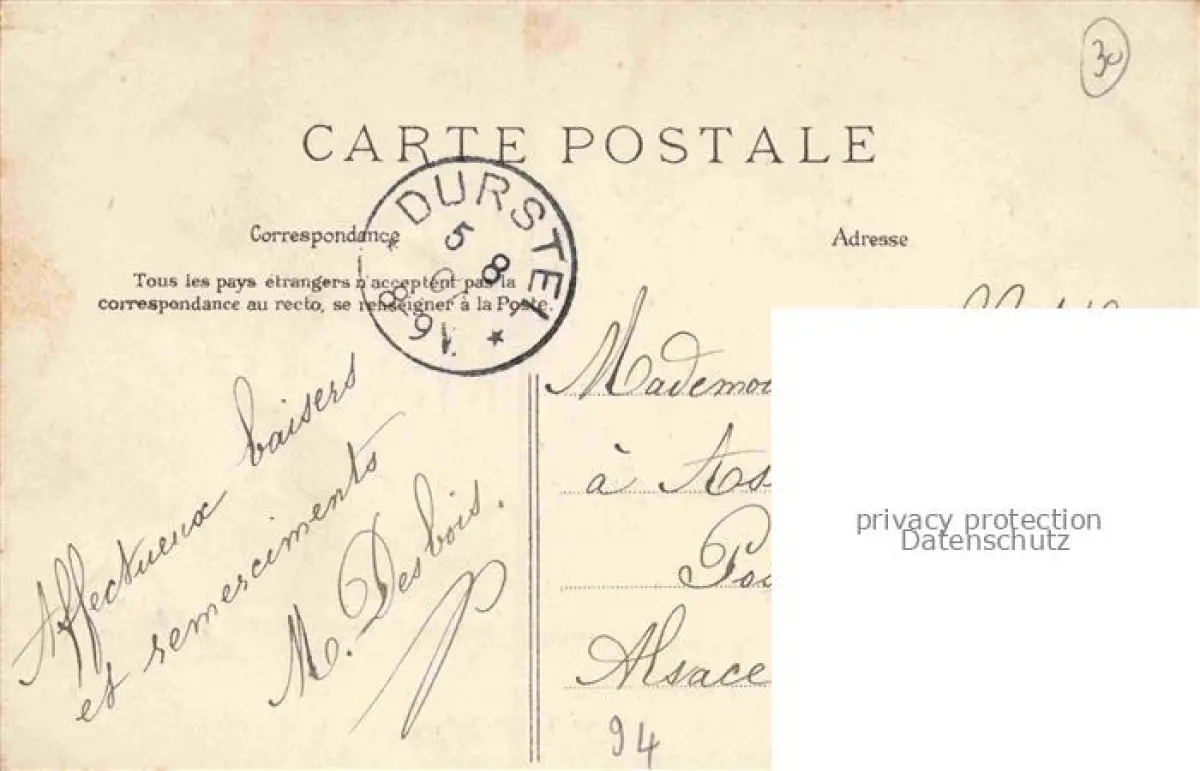 30
CARTE POSTALE
DURSTEL
5
8
8-9N
Correspondance
Adresse
Tous les pays étrangers n'acceptent pas la
correspondance au recto, se renseigner à la Poste.
Affectueux baisers
et remerciments
M. Desbois.
Mademoi
à As
Pos
Alsace
94
privacy protection
Datenschutz